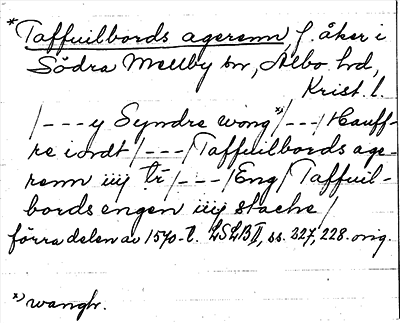 *Taffuilbords agerenn, f. åker i
Södra Mellby sn, Albo hd,
Krist. l.
/---y Syndre wong *) /---/ Hauff-
re i ondt /---/ Taffuilbords age-
renn iiij tr /---/ Eng / Taffuil-
bords engen iiij stache /
förra delen av 1570-t. LSLB II, ss. 327, 228. orig.
*) wangh.